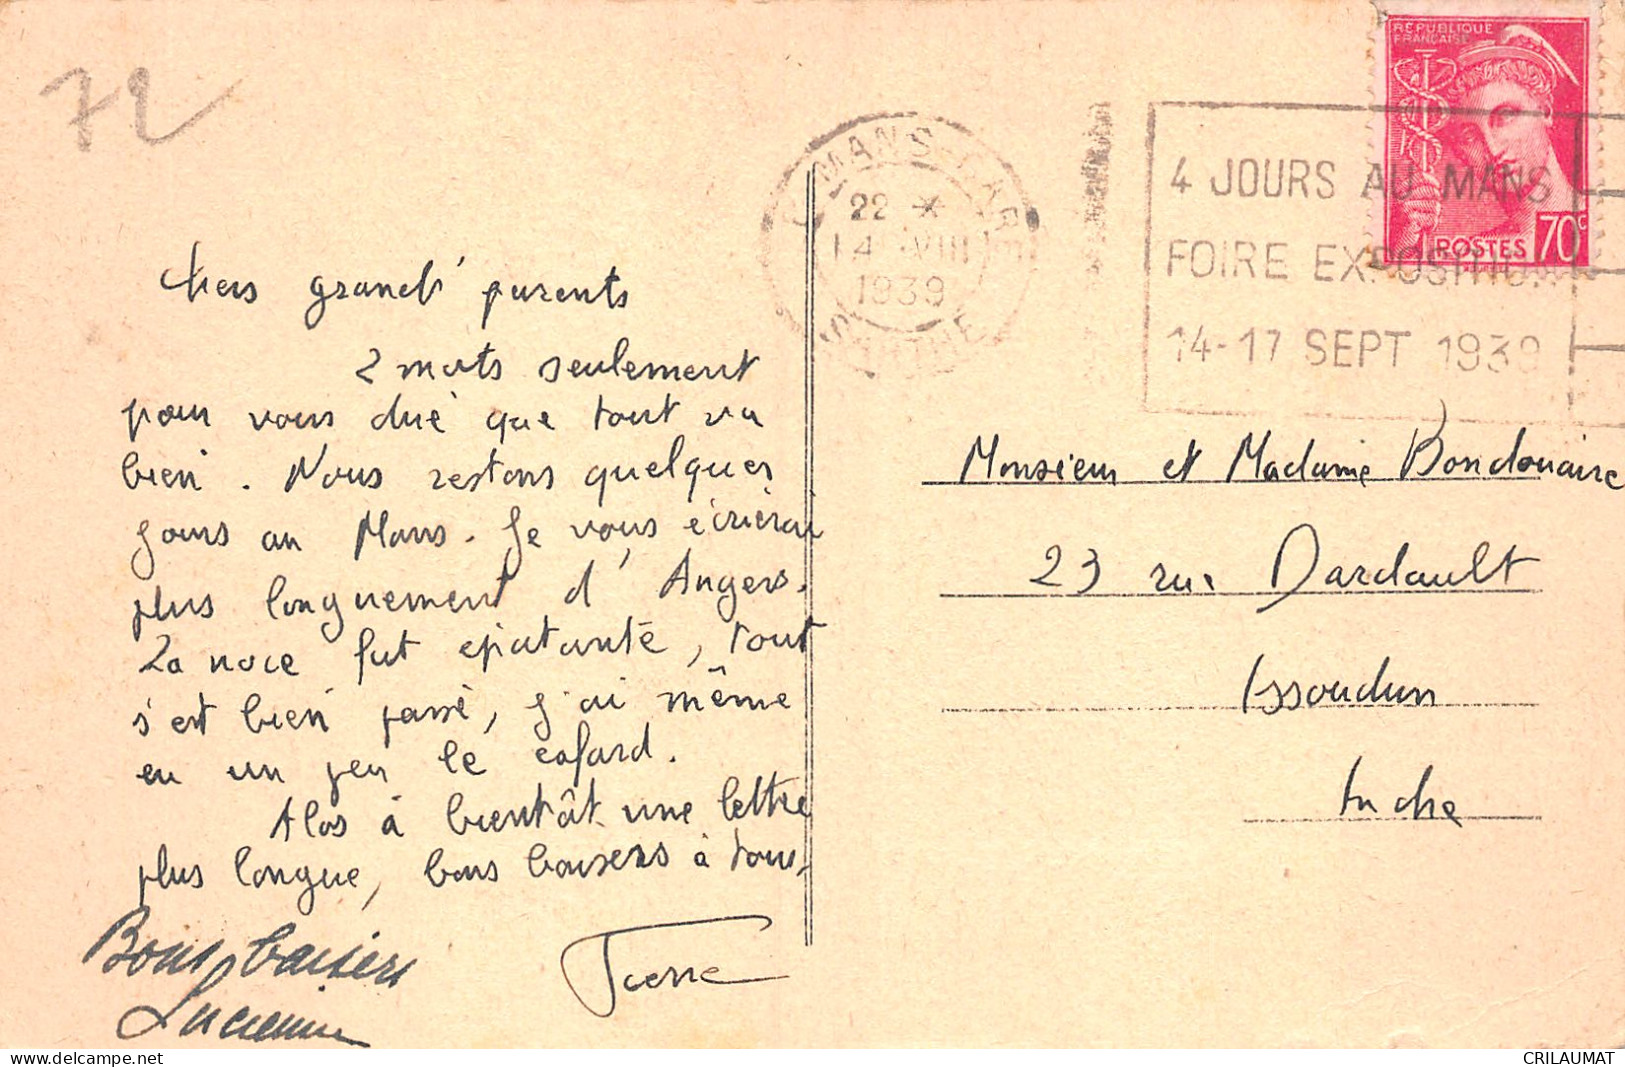 72
Chers grand' parents
2 mots seulement
pour vous dire que tout va
bien. Nous restons quelques
jours au Mans. Je vous écrierai
plus longuement d'Angers.
La noce fut épatante, tout
s'est bien passé, j'ai même
eu un peu le cafard.
Alos à bientôt une lettre
plus longue, bons baisers à tous.
Pierre
Bons baisers
Lucienne
LE MANS-GARE
22 H
14 VIII
1939
SARTHE
4 JOURS AU MANS
FOIRE EXPOSITION
14-17 SEPT 1939
RÉPUBLIQUE
FRANÇAISE
POSTES 70c
Monsieur et Madame Bondonaire
23 rue Dardault
Issoudun
Indre
www.delcampe.net
CRILAUMAT